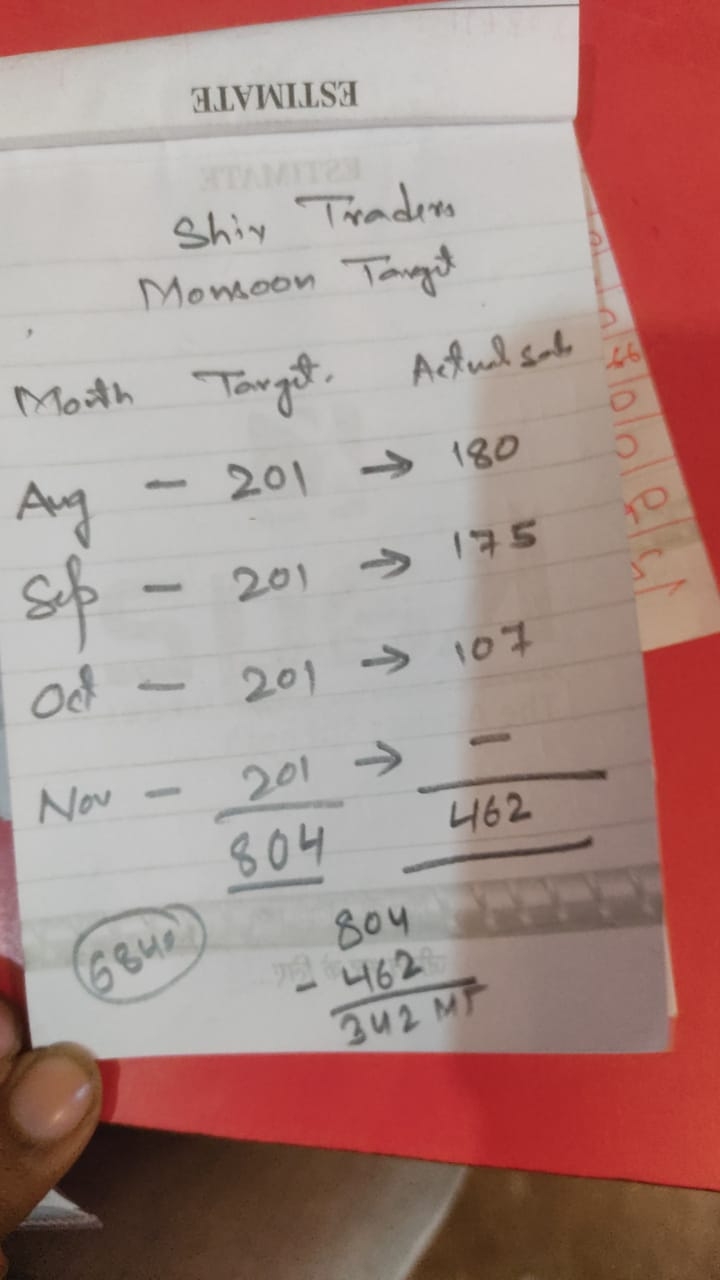 ESTIMATE
Shiv Traders
Monsoon Target
Month Target. Actual sale
Aug - 201 → 180
Sep - 201 → 175
Oct - 201 → 107
Nov - 201 → -
804 462
6840
804
- 462
342 MT